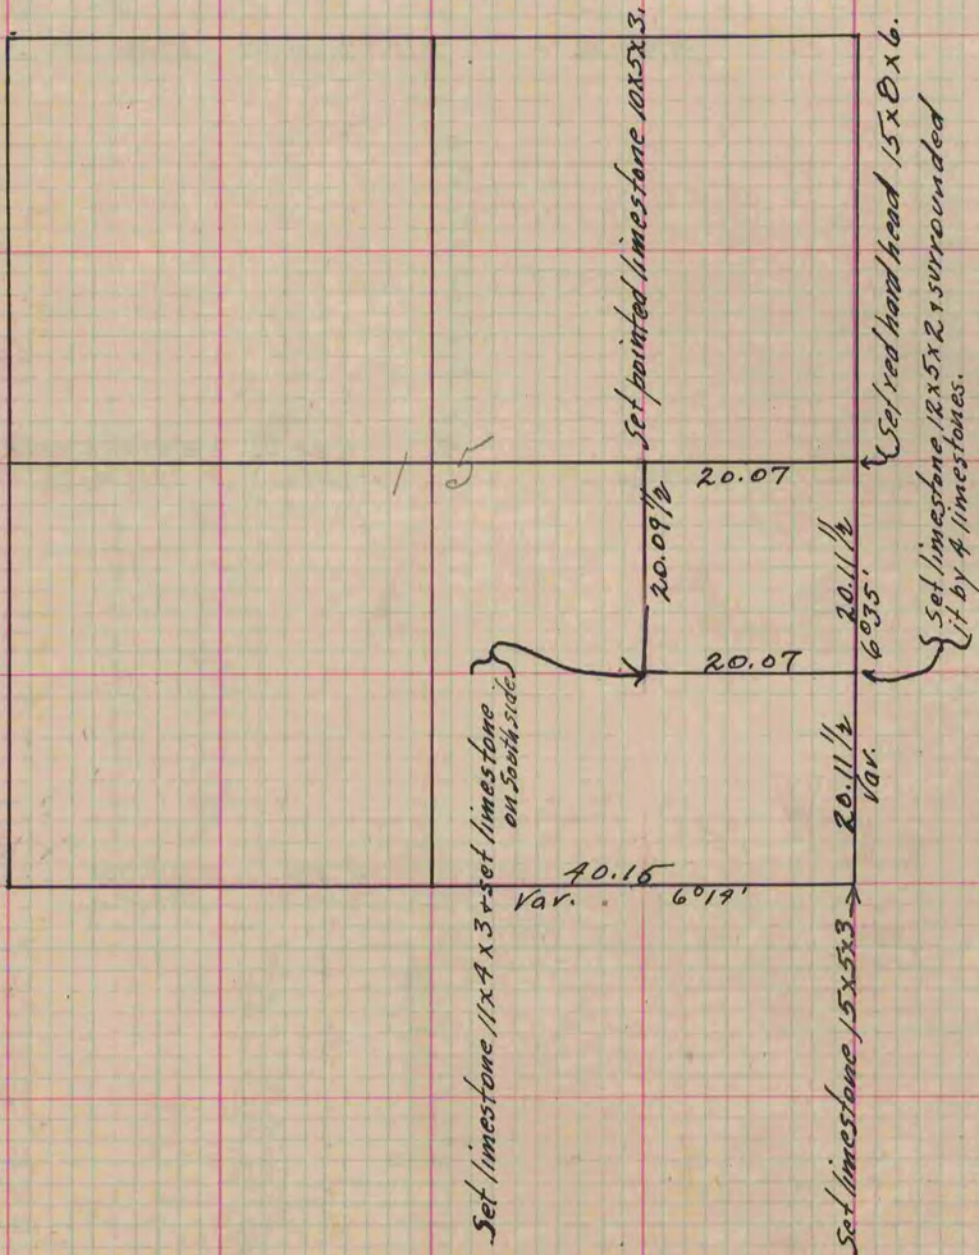 Set pointed limestone 10x5x3.
Set red hard head 15x8x6.
Set limestone 12x5x2 & surrounded
it by 4 limestones.
15
20.07
20.09 1/2
20.07
20.11 1/2
6°35'
20.11 1/2
Var.
Set limestone 11x4x3 & set limestone
on South side
40.15
Var. 6°14'
Set limestone 15x5x3